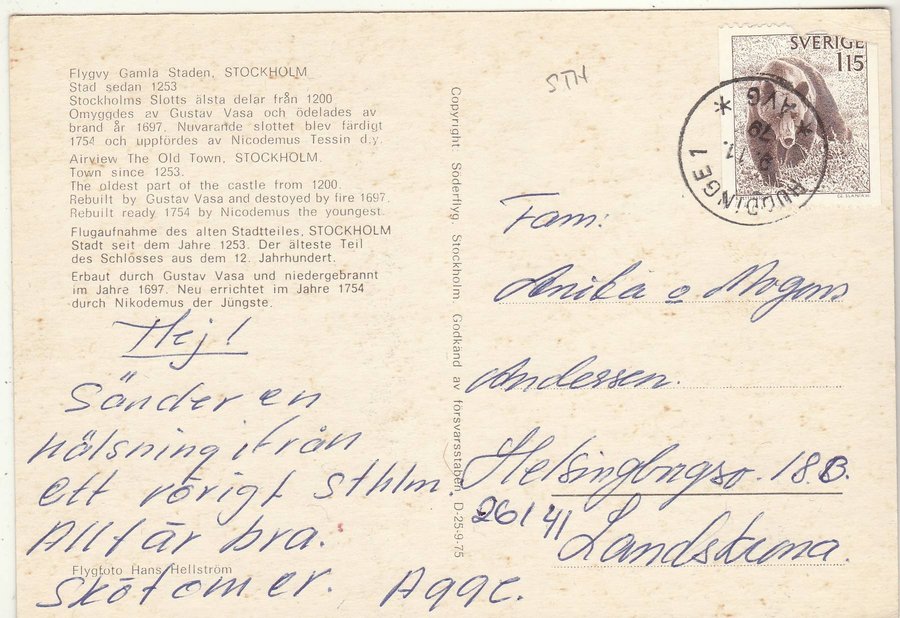 Flygvy Gamla Staden, STOCKHOLM
Stad sedan 1253
Stockholms Slotts älsta delar från 1200
Omyggdes av Gustav Vasa och ödelades av
brand år 1697. Nuvarande slottet blev färdigt
1754 och uppfördes av Nicodemus Tessin d.y.
Airview The Old Town, STOCKHOLM.
Town since 1253.
The oldest part of the castle from 1200.
Rebuilt by Gustav Vasa and destoyed by fire 1697.
Rebuilt ready 1754 by Nicodemus the youngest.
Flugaufnahme des alten Stadtteiles, STOCKHOLM
Stadt seit dem Jahre 1253. Der älteste Teil
des Schlosses aus dem 12. Jahrhundert.
Erbaut durch Gustav Vasa und niedergebrannt
im Jahre 1697. Neu errichtet im Jahre 1754
durch Nikodemus der Jüngste.
Hej!
Sänder en
hälsning ifrån
ett rörigt Sthlm.
Allt är bra.
Flygfoto Hans Hellström
Sköt om er. Agge.
Copyright: Söderflyg Stockholm Godkänd av försvarsstaben D-25-9-75
STH
SVERIGE
115
HUDDINGE 1
AVG
79
Fam:
Anita o Mogens
Andersen.
Helsingborgsv. 18 B.
261 41
Landskrona.